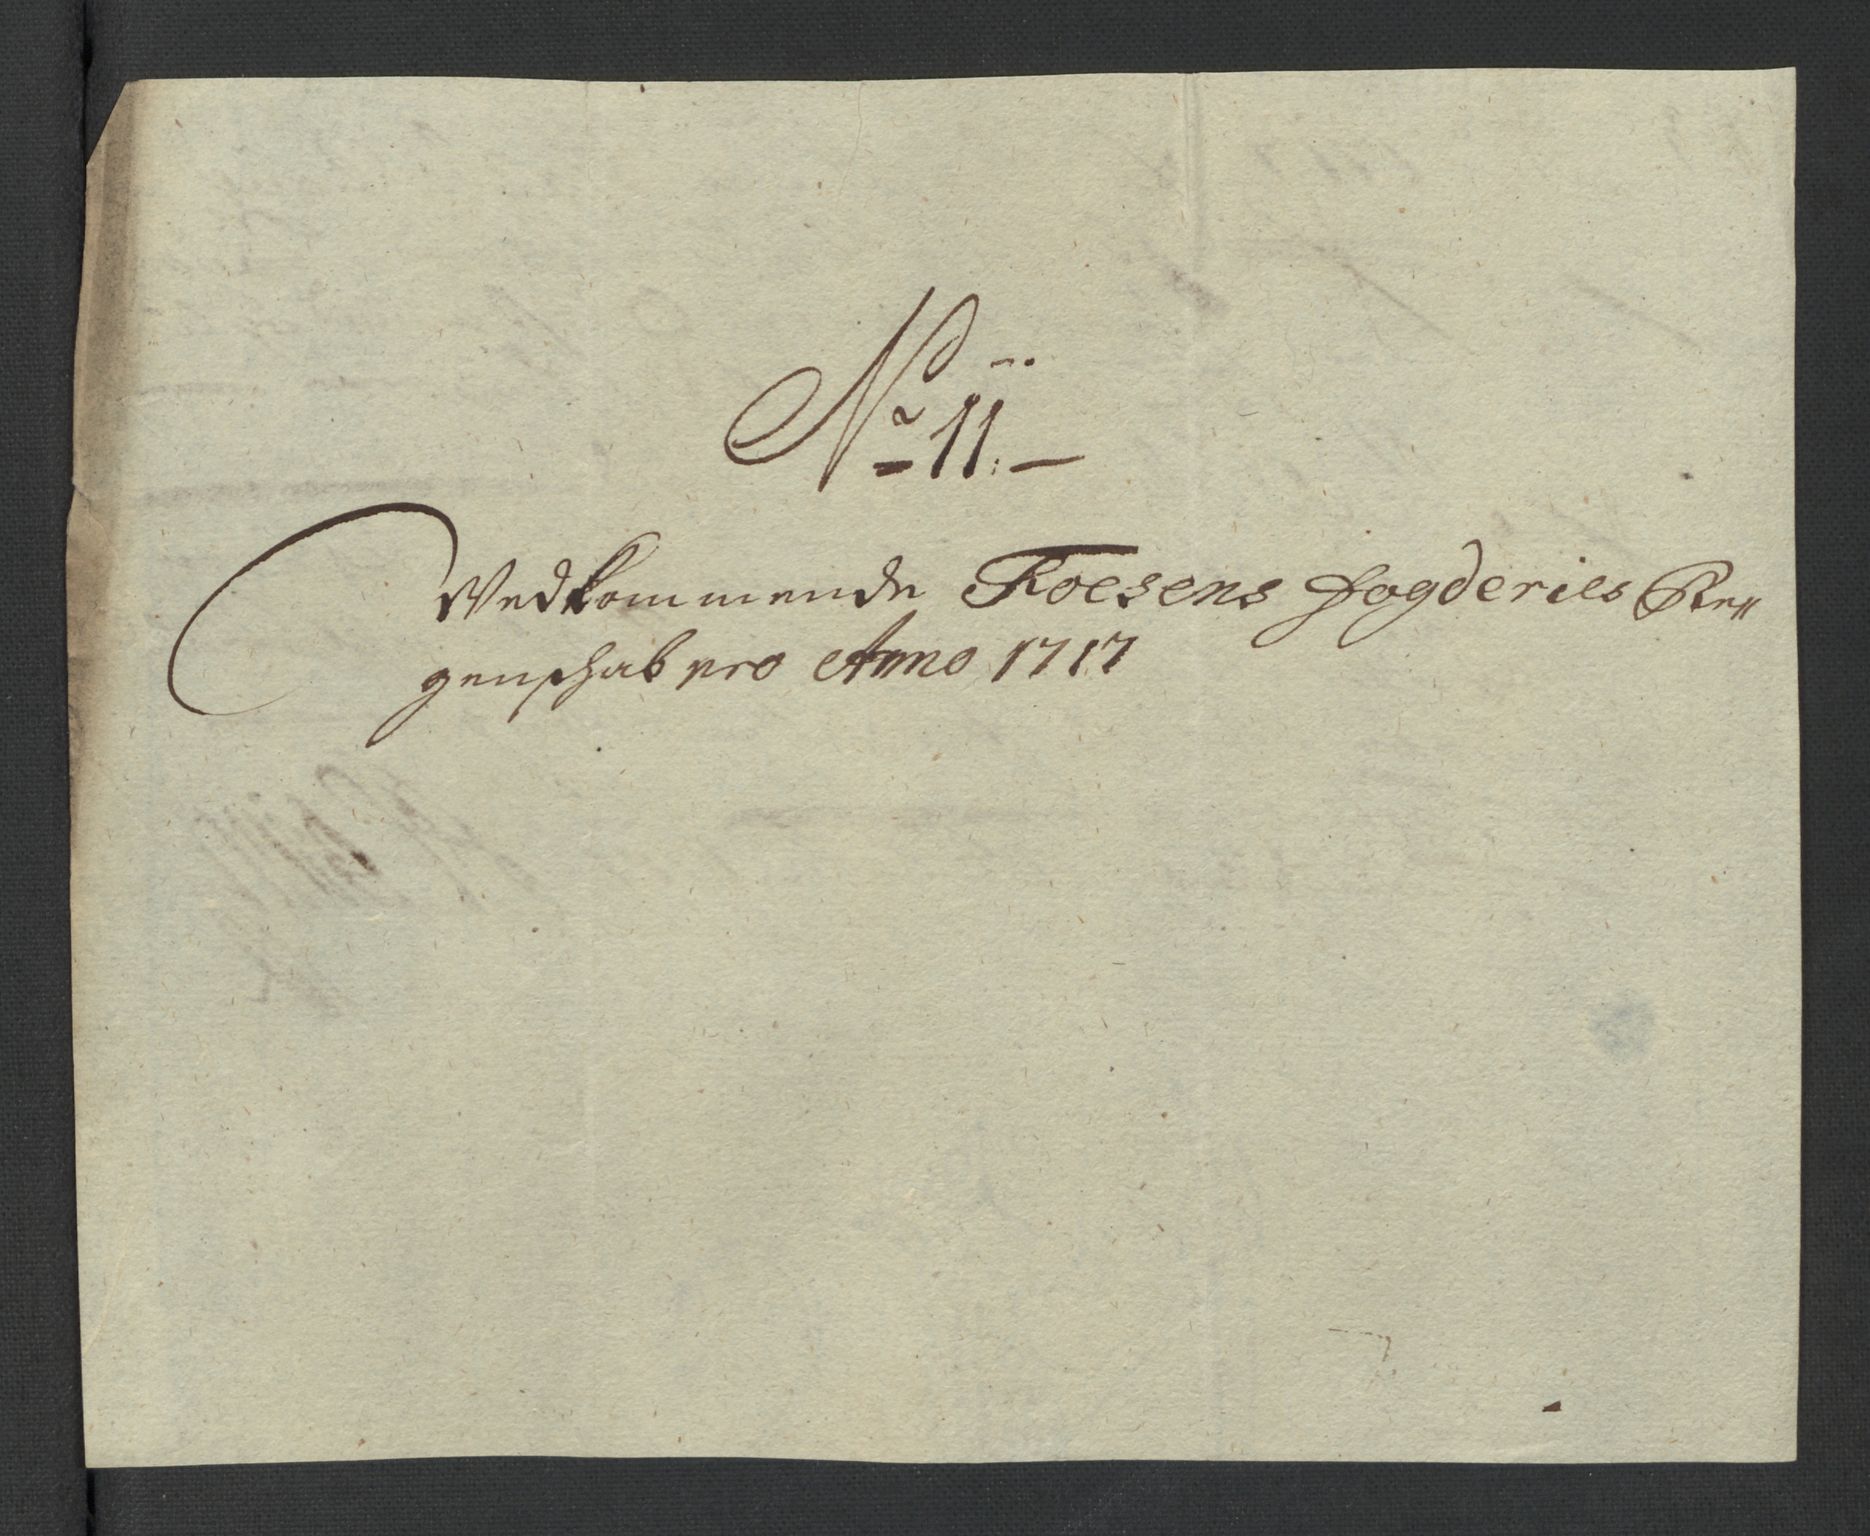 No 11.
Vedkommende Foesens Fogderies Re„
genschab pro Anno 1717